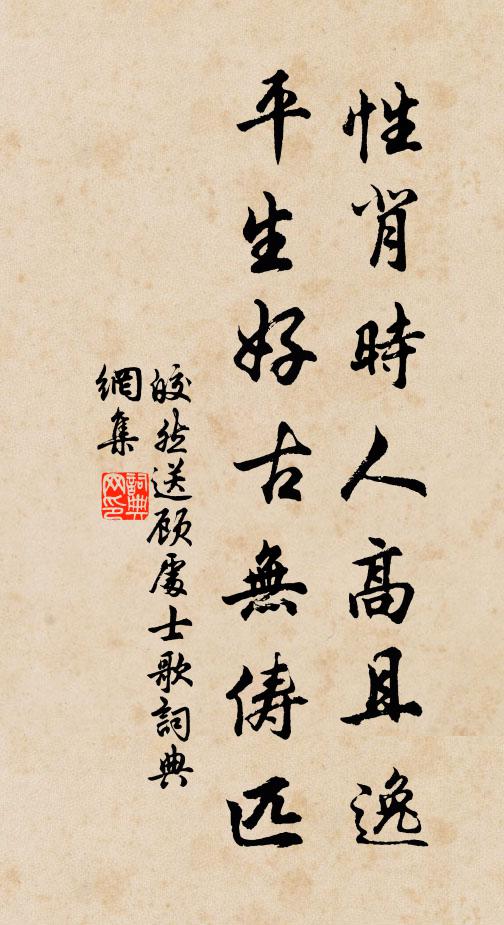 性背時人高且逸
平生好古無儔匹
皎然送顾處士歌詞典
網集
詞典
网印